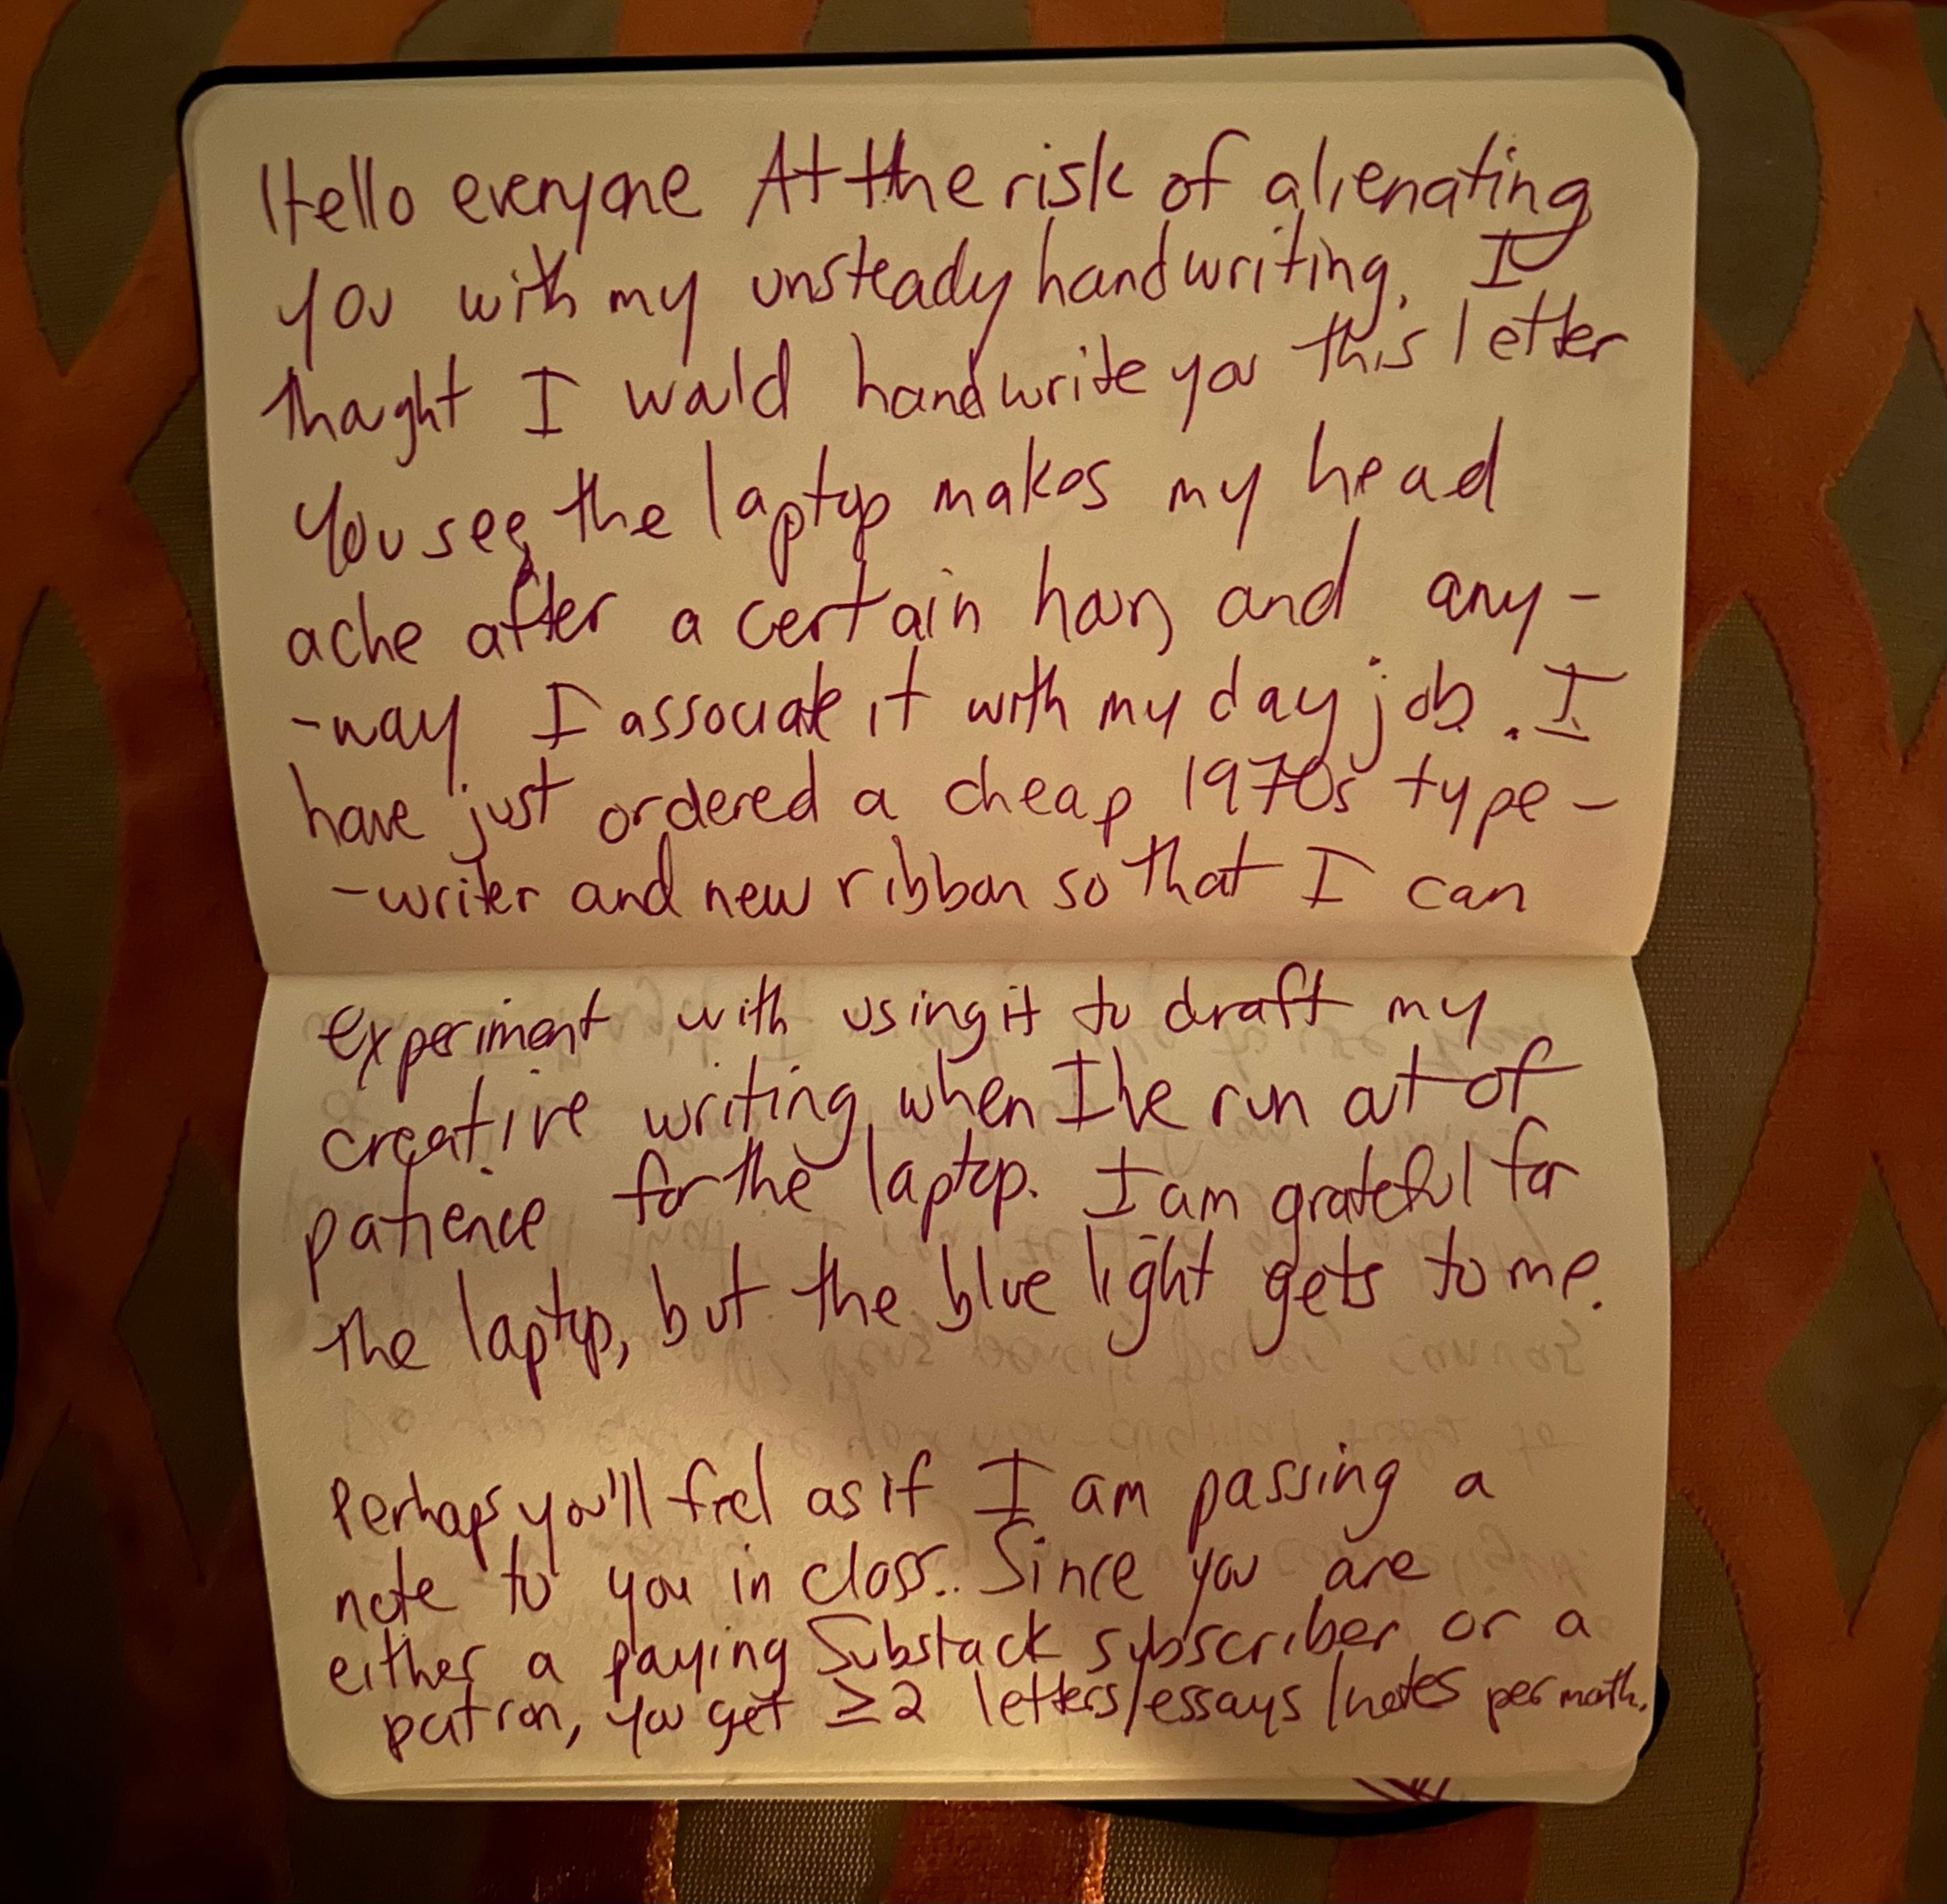 Hello everyone At the risk of alienating
you with my unsteady handwriting, I
thought I would handwrite you this letter
You see, the laptop makes my head
ache after a certain hour, and any-
-way I associate it with my day job. I
have just ordered a cheap 1970s type-
-writer and new ribbon so that I can
experiment with using it to draft my
creative writing, when I've run out of
patience for the laptop. I am grateful for
the laptop, but the blue light gets to me.
Perhaps you'll feel as if I am passing a
note to you in class.. Since you are
either a paying Substack subscriber or a
patron, you get ≥2 letters/essays/notes per month.